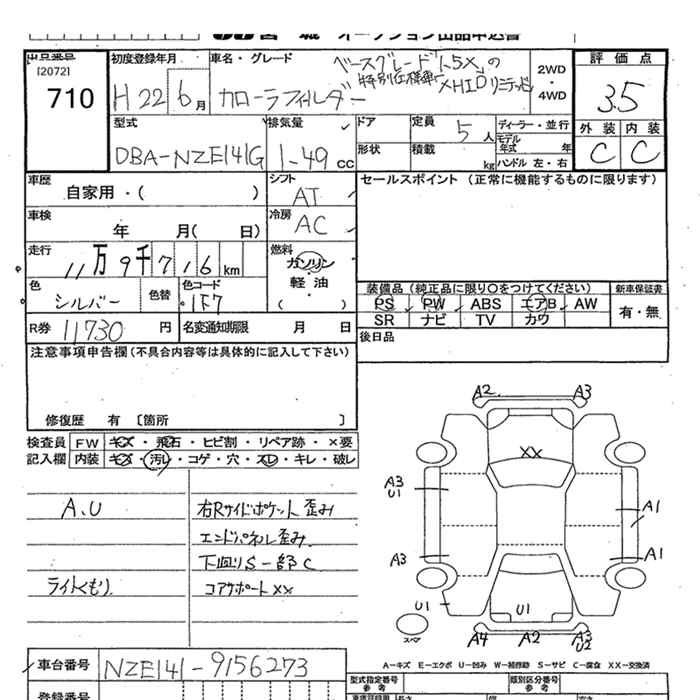 宮城 オークション出品申込書
出品番号
[2072]
710
初度登録年月
H 22 6 月
車名・グレード
ベースグレード「1.5X」の
特別仕様車で XHIDリミテッド
カローラフィールダー
2WD
・
4WD
評価点
3.5
外装 内装
C C
型式
DBA-NZE141G
排気量
1-49 CC
ドア
定員 5 人
形状
積載 kg
ディーラー・並行
モデル年式 年
ハンドル 左・右
車歴
自家用・( )
車検
年 月( 日)
走行
11万9千716 km
色
シルバー
色替
色コード
1F7
シフト
AT
冷房
AC
燃料
ガソリン
・
軽油
・
( )
R券 11730 円
名変通知期限 月 日
セールスポイント (正常に機能するものに限ります)
装備品 (純正品に限り○をつけてください)
PS PW ABS エアB AW
SR ナビ TV カワ
新車保証書
有・無
後日品
注意事項申告欄(不具合内容等は具体的に記入して下さい)
修復歴 有 〔箇所 〕
検査員記入欄
FW キズ・飛石・ヒビ割・リペア跡・×要
内装 キズ・汚レ・コゲ・穴・スレ・キレ・破レ
A、U
ライトくもり
右Rサイドポケット歪み
エンドパネル歪み
下廻りS一部C
コアサポートXX
A2 A3
XX
A3
U1
A1
A3
A1
U1
U1
スペア
A4 A2 A3
U2
A-キズ E-エクボ U-凹み W-補修跡 S-サビ C-腐食 XX-交換済
車台番号 NZE141-9156273
登録番号
型式指定番号
参考
類別区分番号
参考